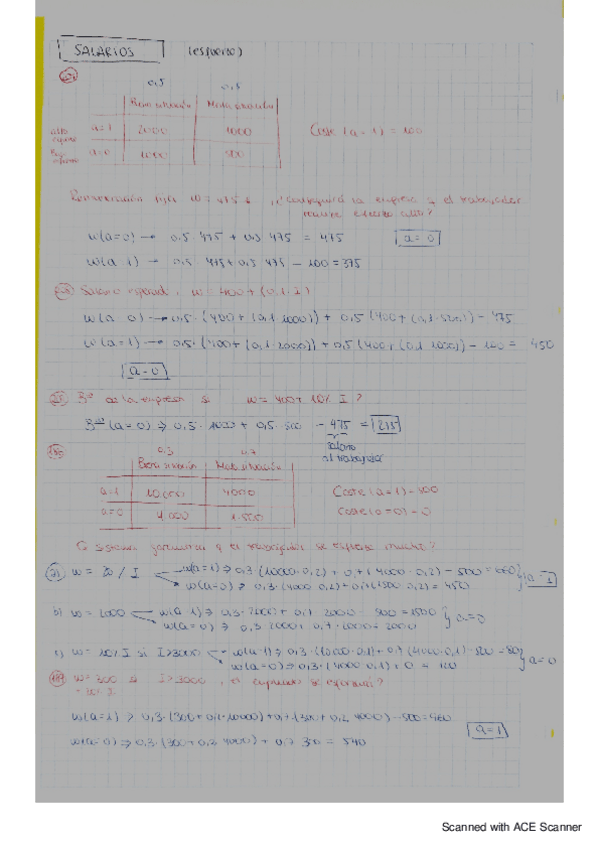 SALARIOS (esfuerzo)
0,5 0,5
Buena situación Mala situación
alto esfuerzo a=1 2000 1000 Coste (a=1) = 100
Bajo esfuerzo a=0 1000 500
Remuneración fija w = 475 ¿ conseguirá la empresa q el trabajador
realice esfuerzo alto?
w(a=0) → 0,5 · 475 + 0,5 · 475 = 475 a=0
w(a=1) → 0,5 · 475 + 0,5 · 475 − 100 = 375
w = 400 + (0,1 · I)
w(a=0) → 0,5 · (400 + (0,1 · 1000)) + 0,5 (400 + (0,1 · 500)) = 475
w(a=1) → 0,5 · (400 + (0,1 · 2000)) + 0,5 (400 + (0,1 · 1000)) − 100 = 450
a=0
de la empresa si w = 400 + 10% I ?
(a=0) ⇒ 0,5 · 1000 + 0,5 · 500 − 475 = 275
salario
al trabajador
0,3 0,7
Buena situación Mala situación
a=1 10.000 4000 Coste (a=1) = 500
a=0 4.000 1.500 Coste (a=0) = 0
w = 20% I w(a=1) ⇒ 0,3 · (10000 · 0,2) + 0,7 (4000 · 0,2) − 500 = 660 a=1
w(a=0) ⇒ 0,3 · (4000 · 0,2) + 0,7 (1500 · 0,2) = 450
b) w = 2000 w(a=1) ⇒ 0,3 · 2000 + 0,7 · 2000 − 500 = 1500 a=0
w(a=0) ⇒ 0,3 · 2000 + 0,7 · 2000 = 2000
c) w = 10% I si I > 3000 w(a=1) ⇒ 0,3 · (10000 · 0,1) + 0,7 (4000 · 0,1) − 500 = 80 a=0
w(a=0) ⇒ 0,3 · (4000 · 0,1) + 0 = 120
w = 300 si I > 3000, ¿ el empleado se esforzará?
w(a=1) ⇒ 0,3 · (300 + 0,2 · 10000) + 0,7 · (300 + 0,2 · 4000) − 500 = 960
w(a=0) ⇒ 0,3 · (300 + 0,2 · 4000) + 0,7 · 300 = 540 a=1
Scanned with ACE Scanner